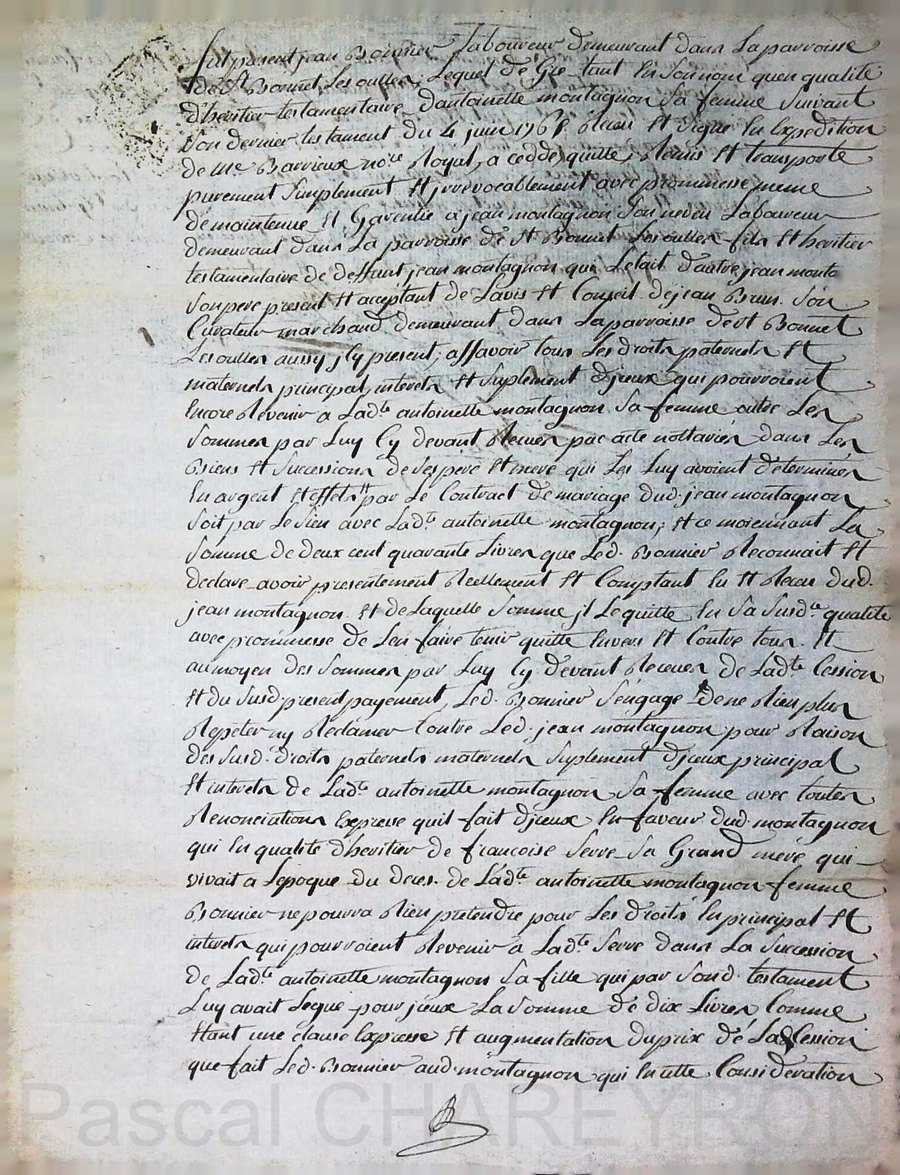 fut present jean Bonnier Laboureur demeurant dans La parroisse
de st Bonnet Les oulles, Lequel de Gré tant En son nom quen qualité
d'heritier testamentaire dantoinette montagnon Sa femme Suivant
Son dernier testament du 4 juin 1768 Reçu Et Signé En Expedition
de me Barrieux nore Royal, a cedde, quitte, Remis Et transporte
purement Simplement Et irrevocablement avec prommesse meme
de maintenue Et Garentie a jean montagnon Son neveu Laboureur
demeurant dans La parroisse de st Bonnet Les oulles fils Et heritier
testamentaire de deffunt jean montagnon qui Letait dautre jean monta
Son pere present Et acceptant de Lavis Et Conseil de jean Brun Son
Curateur marchand demeurant dans La parroisse de st Bonnet
Les oulles aussy jcy present, assavoir tous Les droits paternels Et
maternels principal, interets Et Suplement djceux qui pourroient
Encore Revenir a Ladte antoinette montagnon Sa femme outre Les
Sommes par Luy Cy devant Recues par acte nottariés dans Les
Biens Et Successions de Ses pere Et mere qui Les Luy avoient determinés
En argent Et effets par Le Contract de mariage dud. jean montagnon
Soit par Le Sien avec Ladte antoinette montagnon; Et ce moiennant La
Somme de deux cent quarante Livres que Led. Bonnier Reconnait Et
declare avoir presentement Reellement Et Comptant Eu Et Recu dud.
jean montagnon Et de Laquelle Somme jl Le quitte En Sa Susdte qualité
avec prommesse de Len faire tenir quitte Envers Et Contre tous. Et
au moyen des Sommes par Luy Cy devant Recues de Ladte Cession
Et du Susd. present payement, Led. Bonnier S'engage de ne Rien plus
Repéter ny Réclamer Contre Led. jean montagnon pour Raison
des Susd. droits paternels maternels Suplement djceux principal
Et interets de Ladte antoinette montagnon Sa femme avec toutes
Renonciations Expresse quil fait djceux En faveur dud. montagnon
qui En qualité dheritier de francoise Serre Sa Grand mere qui
vivait a Lepoque du deces de Ladte antoinette montagnon femme
Bonnier ne pourra Rien pretendre pour Les droits En principal Et
interets qui pourroient Revenir a Ladte Serre dans La Succession
de Ladte antoinette montagnon Sa fille qui par Sond. testament
Luy avait Legué pour jceux La Somme de dix Livres Comme
Etant une clause Expresse Et augmentation du prix de La Cession
que fait Led. Bonnier aud. montagnon qui En cette Consideration
Pascal CHAREYRON